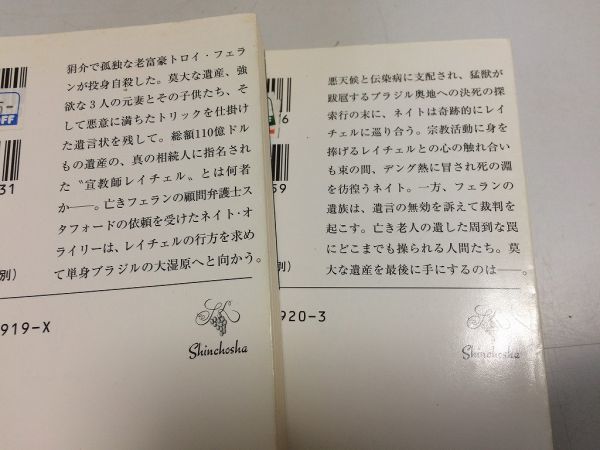 狷介で孤独な老富豪トロイ・フェラ
ンが投身自殺した。莫大な遺産、強
欲な3人の元妻とその子供たち、そ
して悪意に満ちたトリックを仕掛け
た遺言状を残して。総額110億ドル
もの遺産の、真の相続人に指名され
た〝宣教師レイチェル〟とは何者
か――。亡きフェランの顧問弁護士ス
タフォードの依頼を受けたネイト・オ
ライリーは、レイチェルの行方を求め
て単身ブラジルの大湿原へと向かう。
OFF
31
別)
919-X
Shinchosha
悪天候と伝染病に支配され、猛獣が
跋扈するブラジル奥地への決死の探
索行の末に、ネイトは奇跡的にレイ
チェルに巡り合う。宗教活動に身を
捧げるレイチェルとの心の触れ合い
も束の間、デング熱に冒され死の淵
を彷徨うネイト。一方、フェランの
遺族は、遺言の無効を訴えて裁判を
起こす。亡き老人の遺した周到な罠
にどこまでも操られる人間たち。莫
大な遺産を最後に手にするのは――。
6
59
別)
920-3
Shinchosha